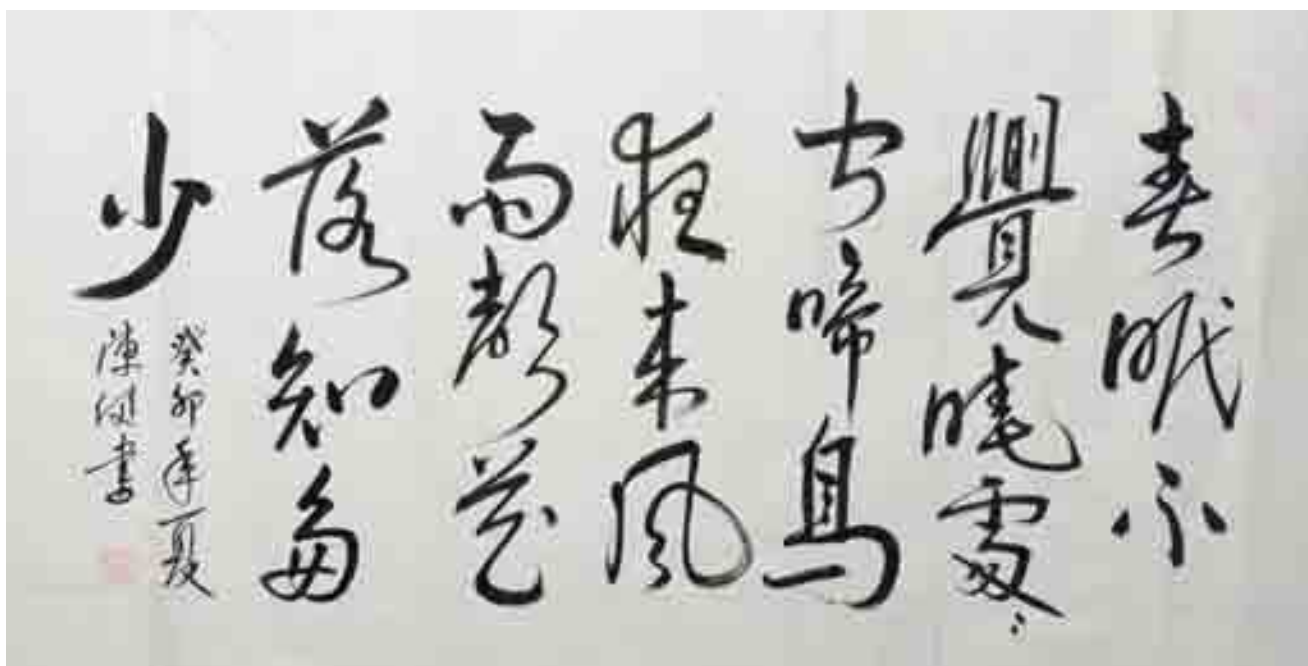 春眠不
覺曉處〻
聞啼鳥
夜来風
雨聲花
落知多
少
癸卯年夏
陳書